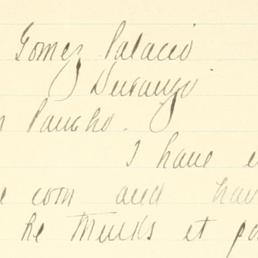 Gomez Palacio
Durango.
Pancho.
I have
corn and hav
he thinks it po